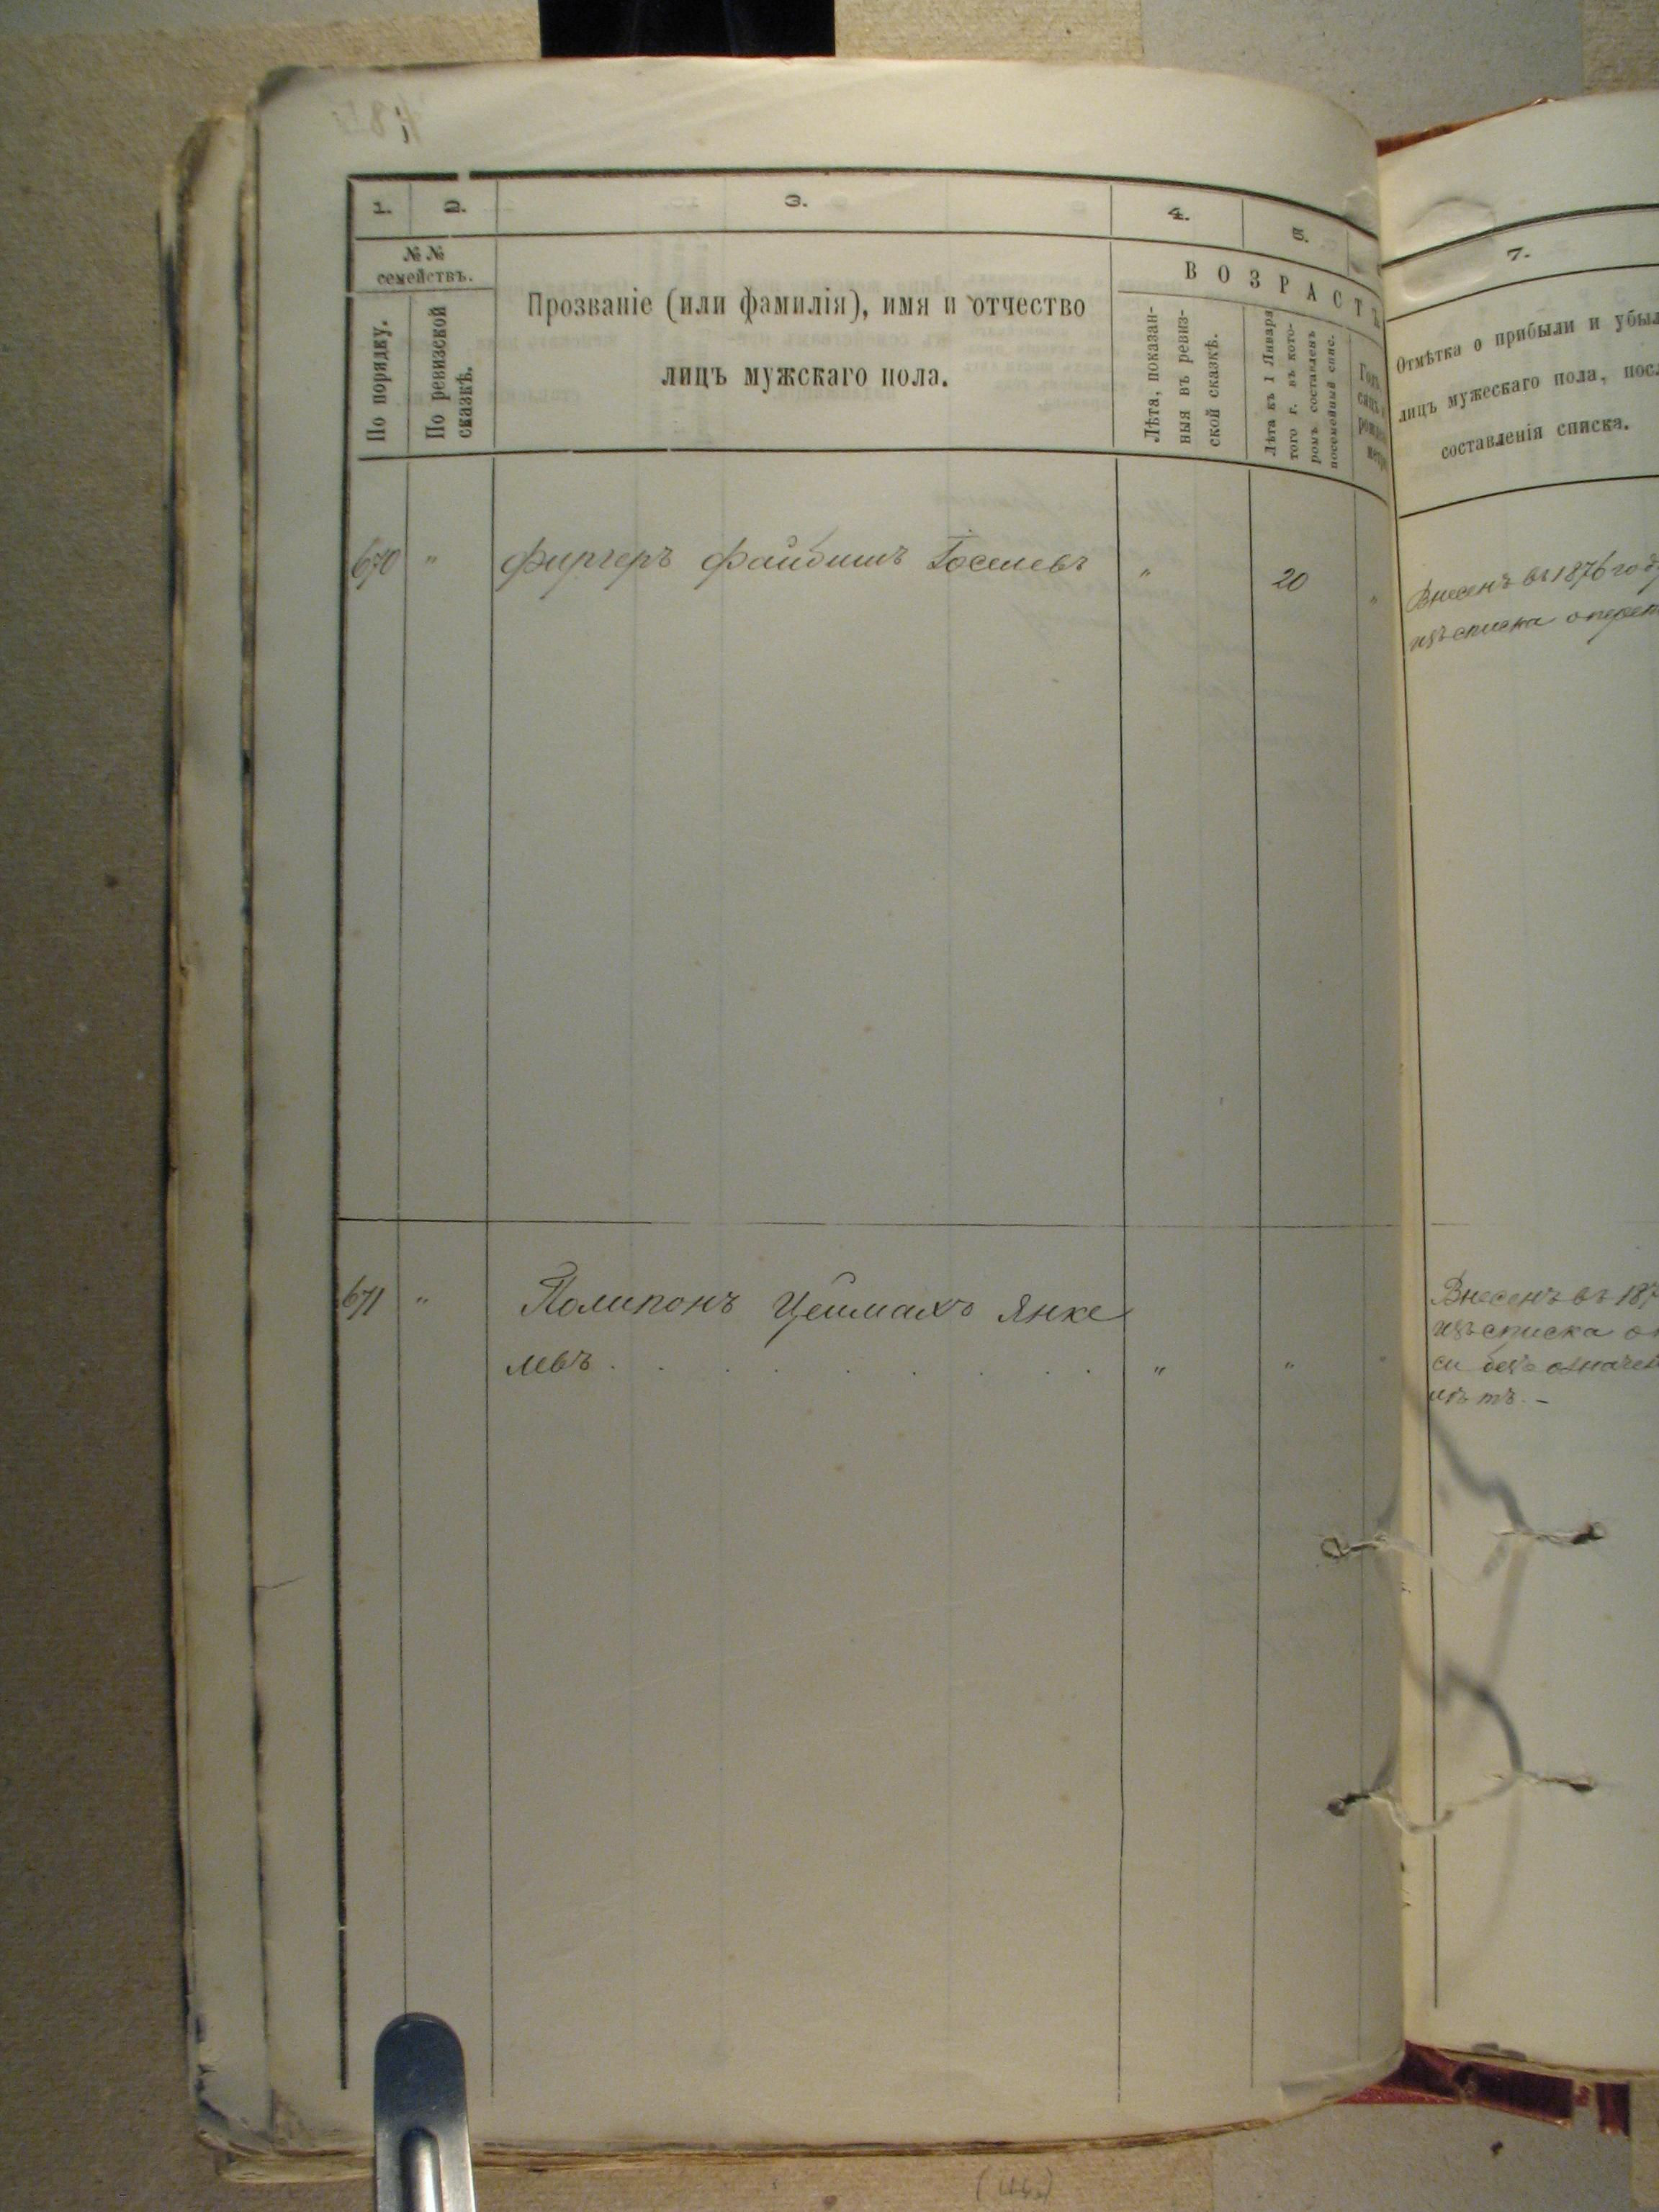 1.
2.
3.
4.
5.
7.
№ № семействъ.
По порядку.
По ревизской сказкѣ.
Прозваніе (или фамилія), имя и отчество
лицъ мужскаго пола.
ВОЗРАСТЪ
Лѣта, показан-
ныя въ ревиз-
ской сказкѣ.
Лѣта къ 1 Января
того г. въ кото-
ромъ составленъ
посемейный спис.
Отмѣтка о прибыли и убыл
лицъ мужескаго пола, посл
составленія списка.
670 " Фиргеръ Файбишъ Іоселевъ " 20 "
Внесенъ въ 1876 году
изъ списка о
671 " Полипонъ Цемахъ Янке
левъ . . . . . . . . " "
Внесенъ въ 187
изъ списка о
си безъ означен
лѣтъ. –